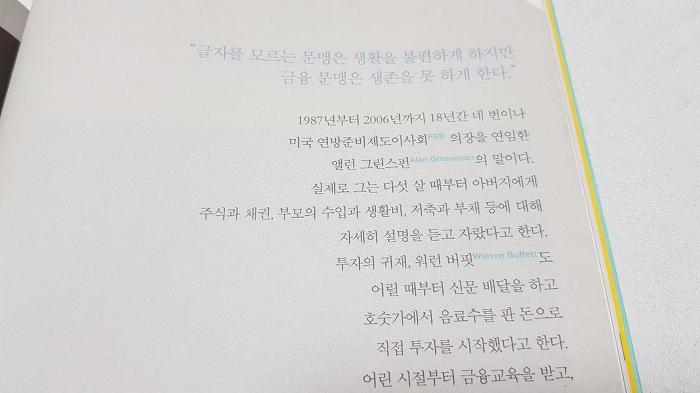 "글자를 모르는 문맹은 생활을 불편하게 하지만
금융 문맹은 생존을 못 하게 한다."
1987년부터 2006년까지 18년간 네 번이나
미국 연방준비제도이사회FRB 의장을 연임한
앨런 그린스펀Alan Greenspan의 말이다.
실제로 그는 다섯 살 때부터 아버지에게
주식과 채권, 부모의 수입과 생활비, 저축과 부채 등에 대해
자세히 설명을 듣고 자랐다고 한다.
투자의 귀재, 워런 버핏Warren Buffett도
어릴 때부터 신문 배달을 하고
호숫가에서 음료수를 판 돈으로
직접 투자를 시작했다고 한다.
어린 시절부터 금융교육을 받고,